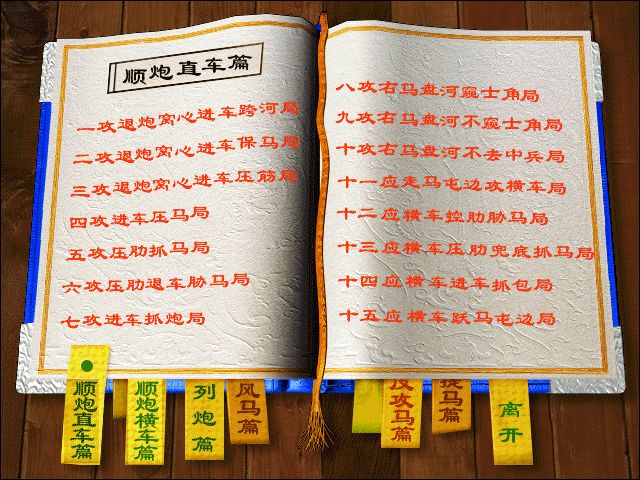 顺炮直车篇
一攻退炮窝心进车跨河局
二攻退炮窝心进车保马局
三攻退炮窝心进车压筋局
四攻进车压马局
五攻压肋抓马局
六攻压肋退车胁马局
七攻进车抓炮局
八攻右马盘河窥士角局
九攻右马盘河不窥士角局
十攻右马盘河不去中兵局
十一应走马屯边攻横车局
十二应横车控肋胁马局
十三应横车压肋兜底抓马局
十四应横车进车抓包局
十五应横车跃马屯边局
顺炮直车篇
顺炮横车篇
列炮篇
风马篇
反攻马篇
马篇
离开